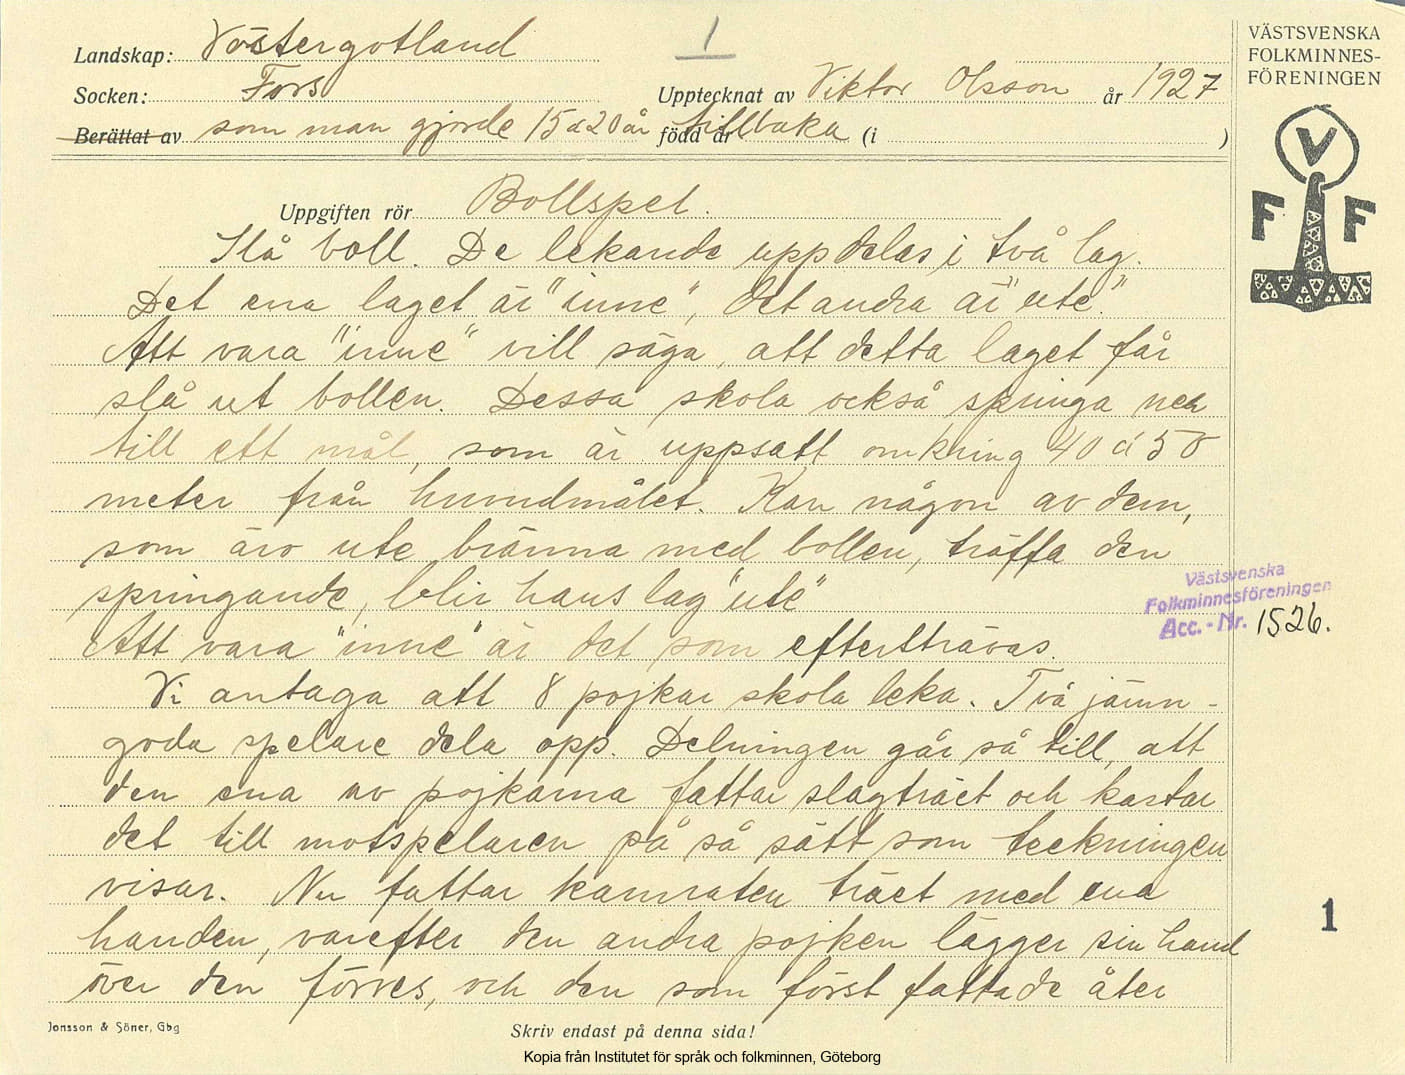 1
Landskap: Västergötland
Socken: Fors
Upptecknat av Viktor Olsson år 1927
Berättat av som man gjorde 15 à 20 år född år tillbaka (i )
Uppgiften rör Bollspel.
Slå boll. De lekande uppdelas i två lag.
Det ena laget är "inne", det andra är "ute."
Att vara "inne" vill säga, att detta laget får
slå ut bollen. Dessa skola också springa ner
till ett mål, som är uppsatt omkring 40 à 50
meter från huvudmålet. Kan någon av dem,
som äro ute bränna med bollen, träffa den
springande, blir hans lag "ute"
Att vara "inne" är det som eftersträvas.
Vi antaga att 8 pojkar skola leka. Två jämn-
goda spelare dela opp. Delningen går så till, att
den ena av pojkarna fattar slagträet och kastar
det till motspelaren på så sätt som teckningen
visar. Nu fattar kamraten träet med ena
handen, varefter den andra pojken lägger sin hand
över den förres, och den som först fattade åter
Jonsson & Söner, Gbg
Skriv endast på denna sida!
Kopia från Institutet för språk och folkminnen, Göteborg
VÄSTSVENSKA
FOLKMINNES-
FÖRENINGEN
V
F F
Västsvenska
Folkminnesföreningen
Acc.-Nr. 1526.
1